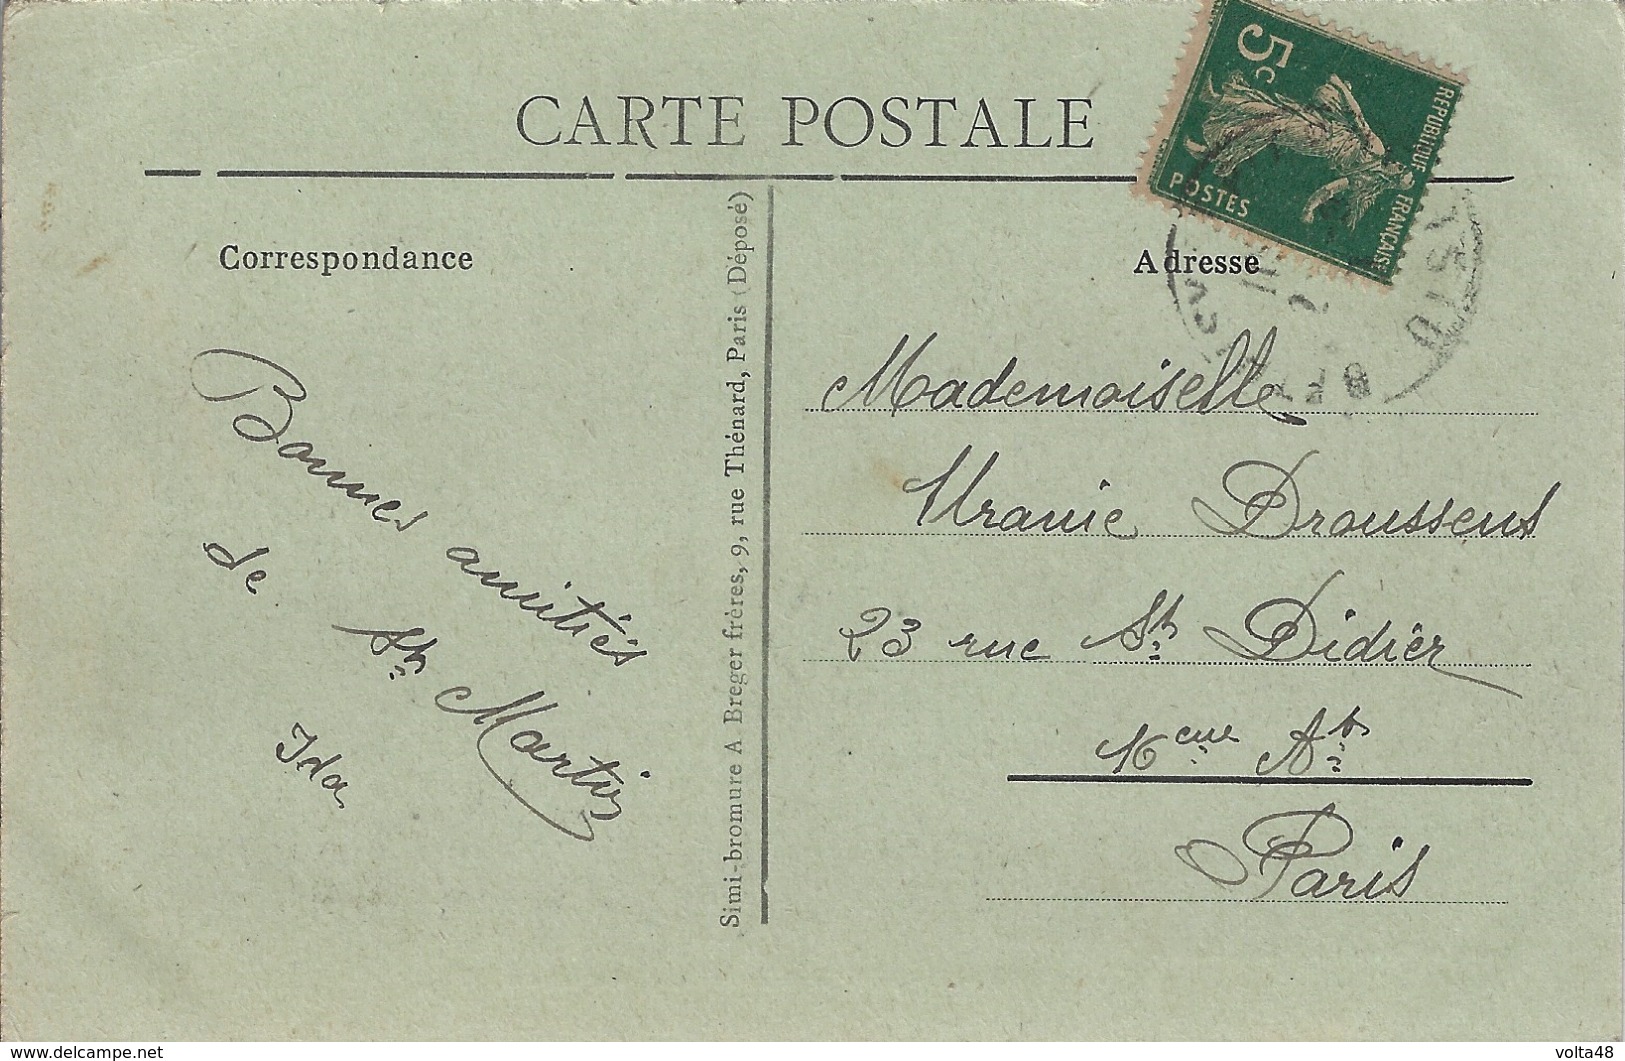 CARTE POSTALE
5c
RÉPUBLIQUE FRANÇAISE
POSTES
Correspondance
Adresse
Bonnes amitiés
de St Martin
Ida
Simi-bromure A Breger frères, 9, rue Thénard, Paris (Déposé)
Mademoiselle
Uranie Droussens
23 rue St Didier
16eme At
Paris
www.delcampe.net
volta48